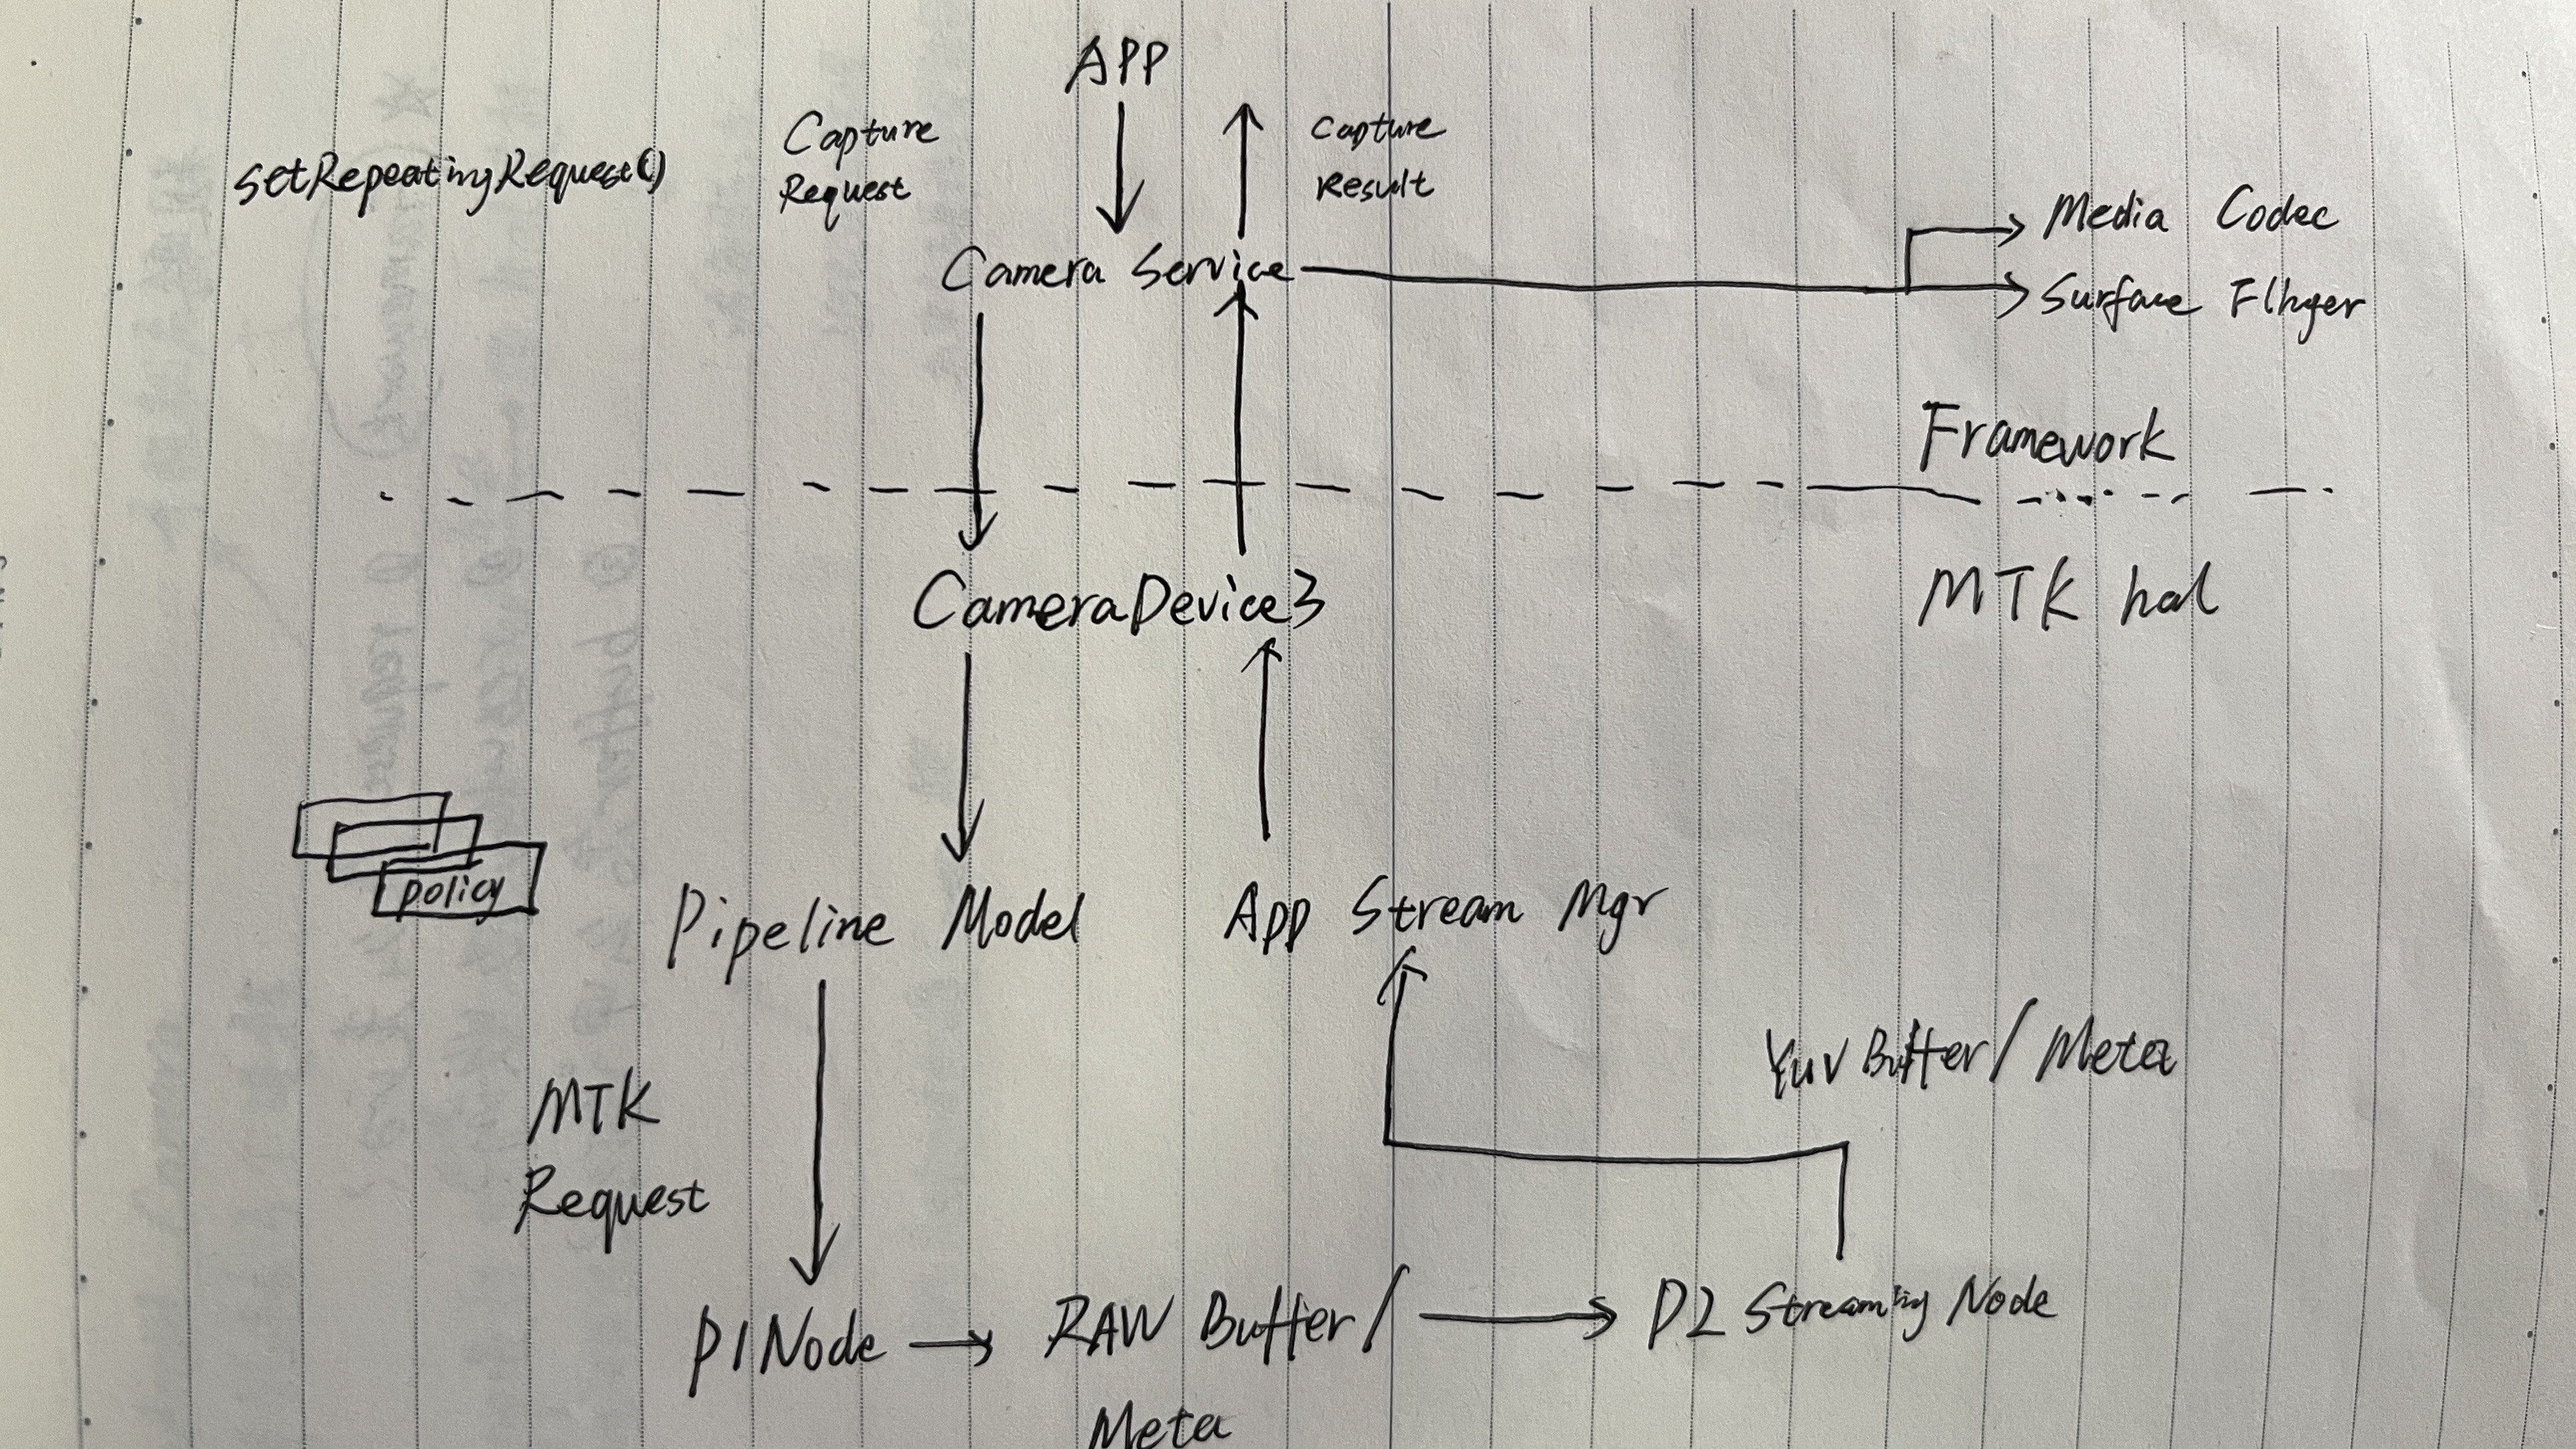 APP
setRepeatingRequest()
Capture
Request
Capture
Result
Camera Service
Media Codec
Surface Flinger
Framework
MTK hal
CameraDevice3
policy
Pipeline Model
App Stream Mgr
MTK
Request
Yuv Buffer / Meta
P1Node
RAW Buffer /
Meta
P2 Streaming Node